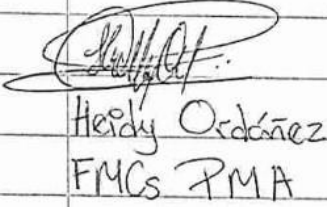 Heidy Ordóñez
FMCs PMA